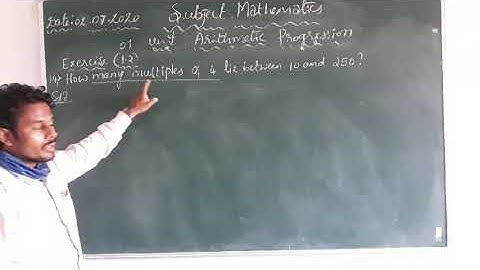 Date: 02.07.2020 Subject Mathematics
01 unit Arithmetic Progression
Exercise (1.2)
14) How many multiples of 4 lie between 10 and 250?
Sol?